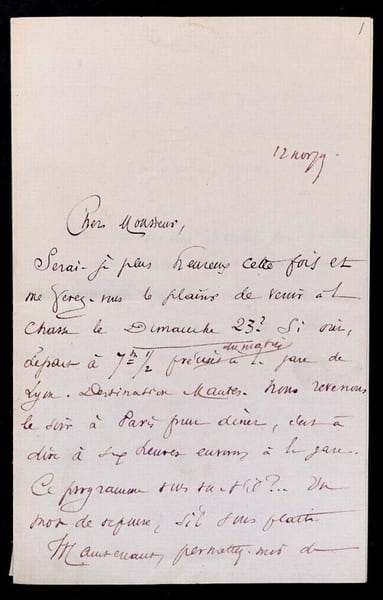 1
12 nov 79.
Cher Monsieur,
Serai-je plus heureux cette fois et
me ferez-vous le plaisir de venir à l
chasse le Dimanche 23? Si oui,
du matin
départ à 7h 1/2 précises à la gare de
Lyon. Destination Mantes. Nous revenons
le soir à Paris pour dîner, c'est à
dire à six heures environ à la gare.
Ce programme vous va-t-il?.. Un
mot de réponse, s'il vous plaît.
Maintenant, permettez-moi de